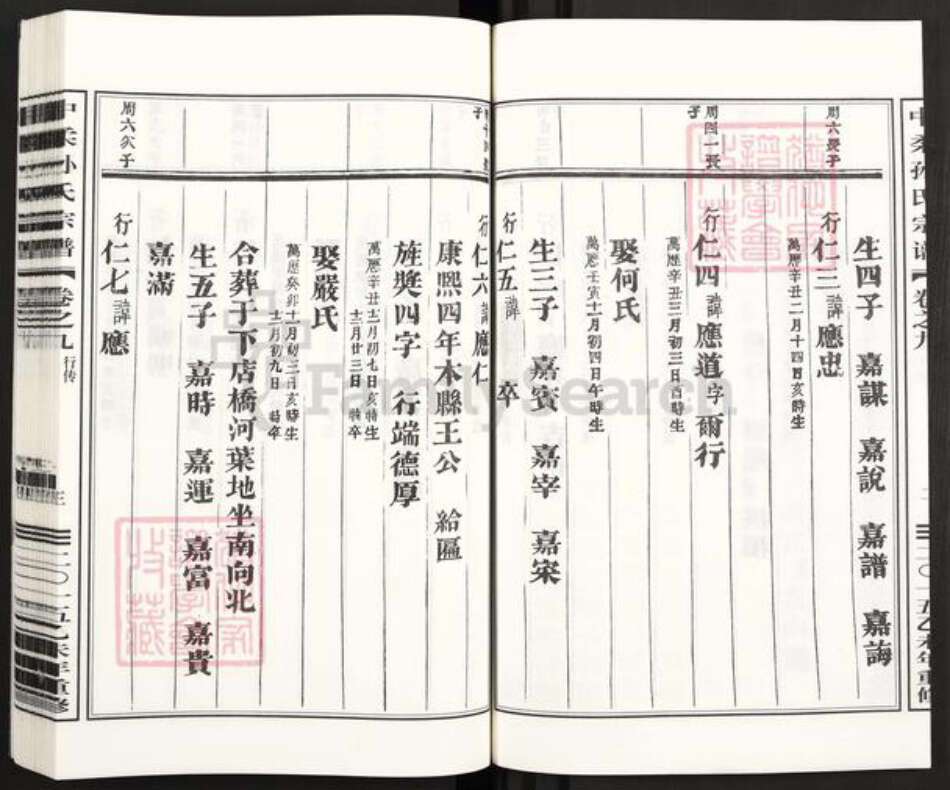 生四子　嘉謀　嘉說　嘉譜　嘉誨
周六長子
行仁三諱應忠
萬歷辛丑二月十四日亥時生
周四一長子
行仁四諱應道字爾行
萬歷辛丑三月初三日酉時生
娶何氏
萬歷壬寅十一月初四日午時生
生三子　嘉賓　嘉宰　嘉宋
行仁五諱　卒
子
行仁六諱應仁
康熙四年本縣王公　給匾
旌獎四字　行端德厚
萬歷辛丑十二月初七日亥時生
十二月廿三日　時卒
娶嚴氏
萬歷癸卯十一月初三日亥時生
十二月初九日　時卒
合葬于下店橋河葉地坐南向北
生五子　嘉時　嘉運　嘉富　嘉貴
嘉滿
周六次子
行仁七諱應
孙氏宗譜【卷之九 行传
三
二〇一五乙未年重修
FamilySearch